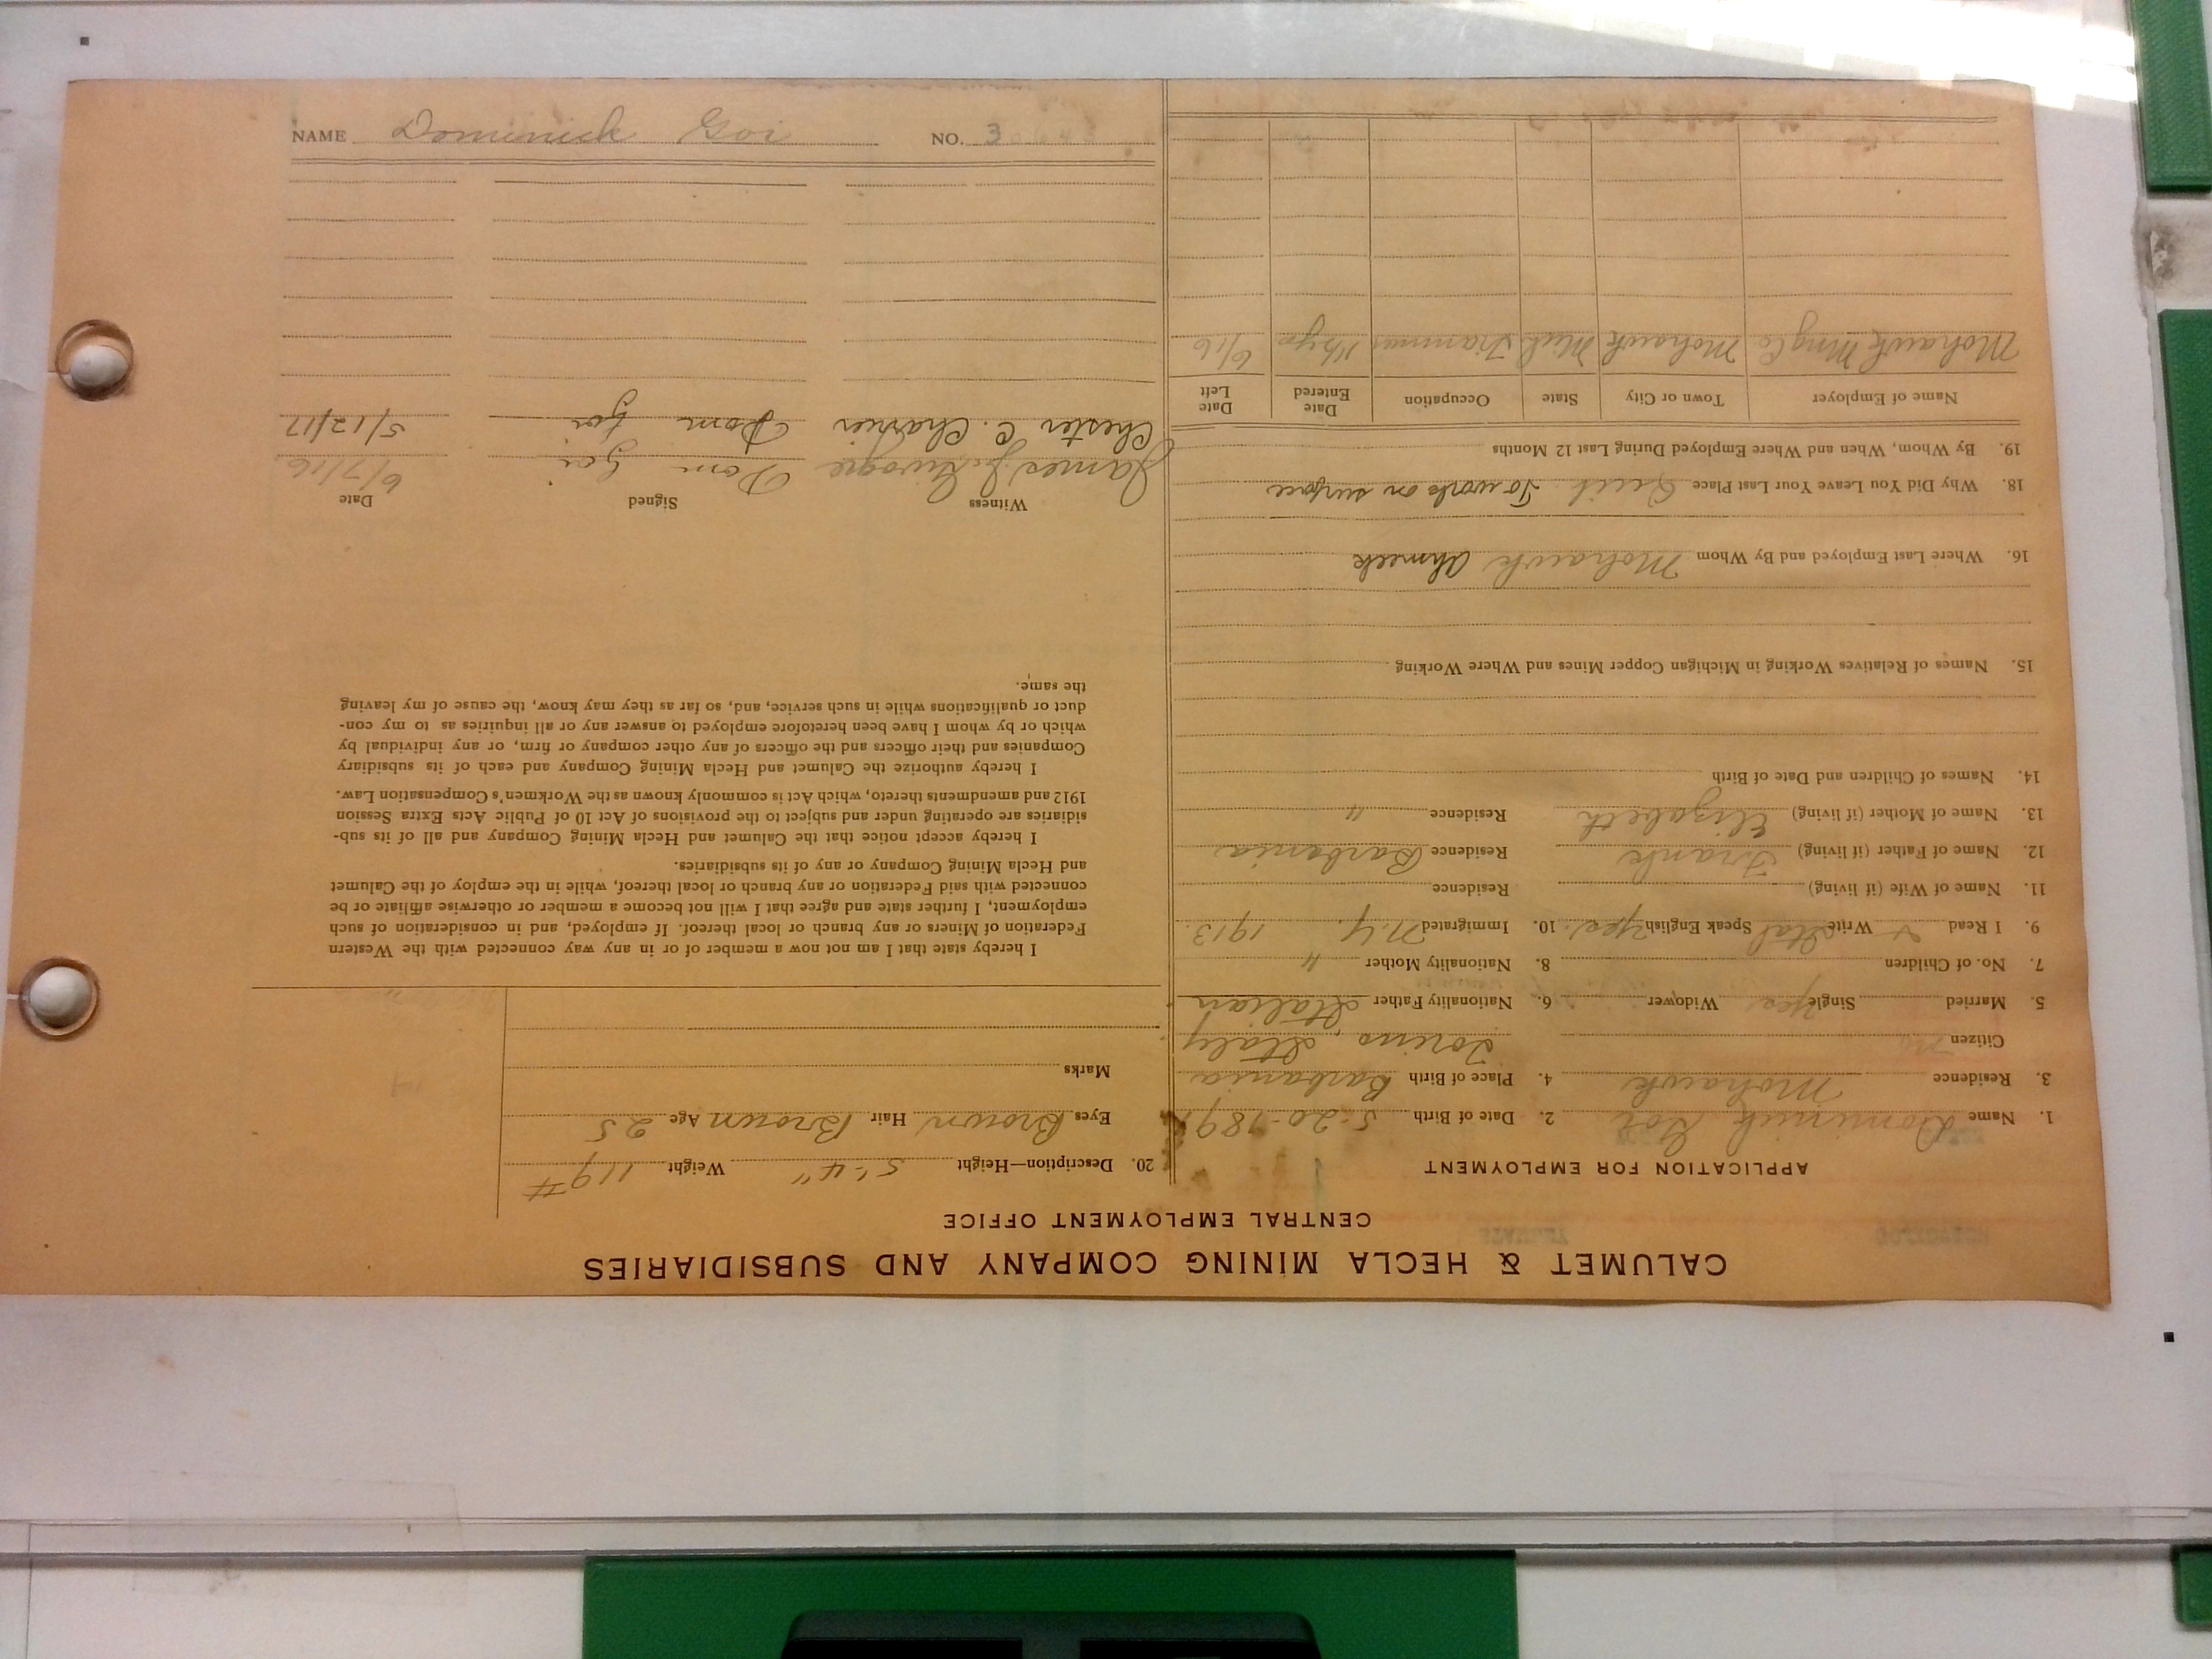 CALUMET & HECLA MINING COMPANY AND SUBSIDIARIES
CENTRAL EMPLOYMENT OFFICE
APPLICATION FOR EMPLOYMENT
1. Name Dominick Goi 2. Date of Birth 5-20-1891
3. Residence Mohawk 4. Place of Birth Barbania
Citizen Torino, Italy
5. Married Single yes Widower 6. Nationality Father Italian
7. No. of Children 8. Nationality Mother "
9. I Read Write Ital Speak English yes. 10. Immigrated N.Y. 1913.
11. Name of Wife (if living) Residence
12. Name of Father (if living) Frank Residence Barbania
13. Name of Mother (if living) Elizabeth Residence "
14. Names of Children and Date of Birth
15. Names of Relatives Working in Michigan Copper Mines and Where Working
16. Where Last Employed and By Whom Mohawk Ahmeek
18. Why Did You Leave Your Last Place Quit. To work on surface
19. By Whom, When and Where Employed During Last 12 Months
Name of Employer Town or City State Occupation Date Entered Date Left
Mohawk Mng Co Mohawk Mich Trammer 1½ yr 6/16
20. Description—Height 5'-4" Weight 119#
Eyes Brown Hair Brown Age 25
Marks
I hereby state that I am not now a member of or in any way connected with the Western
Federation of Miners or any branch or local thereof. If employed, and in consideration of such
employment, I further state and agree that I will not become a member or otherwise affiliate or be
connected with said Federation or any branch or local thereof, while in the employ of the Calumet
and Hecla Mining Company or any of its subsidiaries.
I hereby accept notice that the Calumet and Hecla Mining Company and all of its sub-
sidiaries are operating under and subject to the provisions of Act 10 of Public Acts Extra Session
1912 and amendments thereto, which Act is commonly known as the Workmen's Compensation Law.
I hereby authorize the Calumet and Hecla Mining Company and each of its subsidiary
Companies and their officers and the officers of any other company or firm, or any individual by
which or by whom I have been heretofore employed to answer any or all inquiries as to my con-
duct or qualifications while in such service, and, so far as they may know, the cause of my leaving
the same.
Witness Signed Date
James Dom Goi 6/7/16
Chester C. Charrier Dom Goi 5/12/17
NAME Dominick Goi NO.